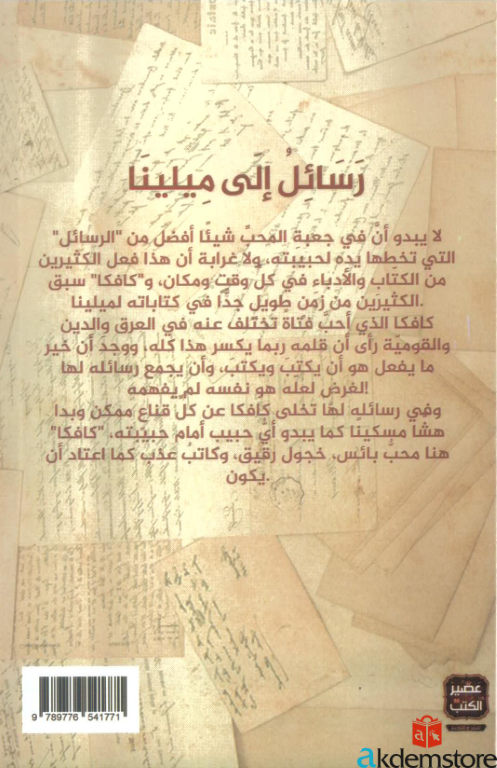 رَسَائِلُ إلَى مِيلينَا
لا يبدو أنَّ في جعبةِ المَحبِّ شيئًا أفضلَ مِن "الرسائل"
التي تخطِّها يده لحبيبتِه، ولا غرابة أن هذا فعل الكثيرين
من الكتَّاب والأدباء في كل وقتٍ ومكان، و"كافكا" سبق
الكثيرين من زمن طويل جدًا في كتاباته لميلينا.
كافكا الذي أحبَّ فتاةً تختلف عنه في العرق والدين
والقومية رأى أن قلمه ربما يكسر هذا كله، ووجد أن خير
ما يفعل هو أن يكتبَ ويكتبَ، وأن يجمع رسائله لها
لغرض لعلَّه هو نفسه لم يفهمه!
وفي رسائلهِ لها تخلى كافكا عن كلِّ قناع ممكن وبدا
هشًا مسكينًا كما يبدو أيُّ حبيب أمام حبيبته، "كافكا"
هنا محب بائس، خجول رقيق، وكاتبٌ عذب كما اعتاد أن
يكون.
9 789776 541771
عصير
الكتب
akdemstore